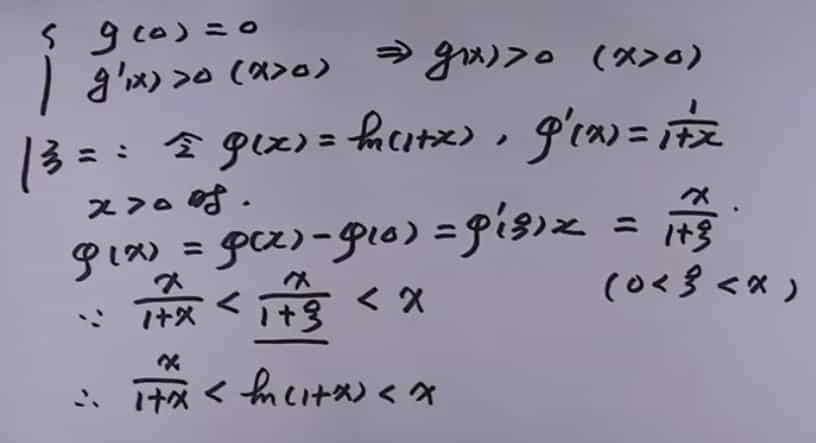 { g(0) = 0
g'(x) > 0 (x>0) ⇒ g(x) > 0 (x>0)
阝3 = : 令 φ(x) = ln(1+x) , φ'(x) = 1/(1+x)
x > 0 时.
φ(x) = φ(x) - φ(0) = φ'(ξ)x = x/(1+ξ) .
(0 < ξ < x)
∵ x/(1+x) < x/(1+ξ) < x
∴ x/(1+x) < ln(1+x) < x